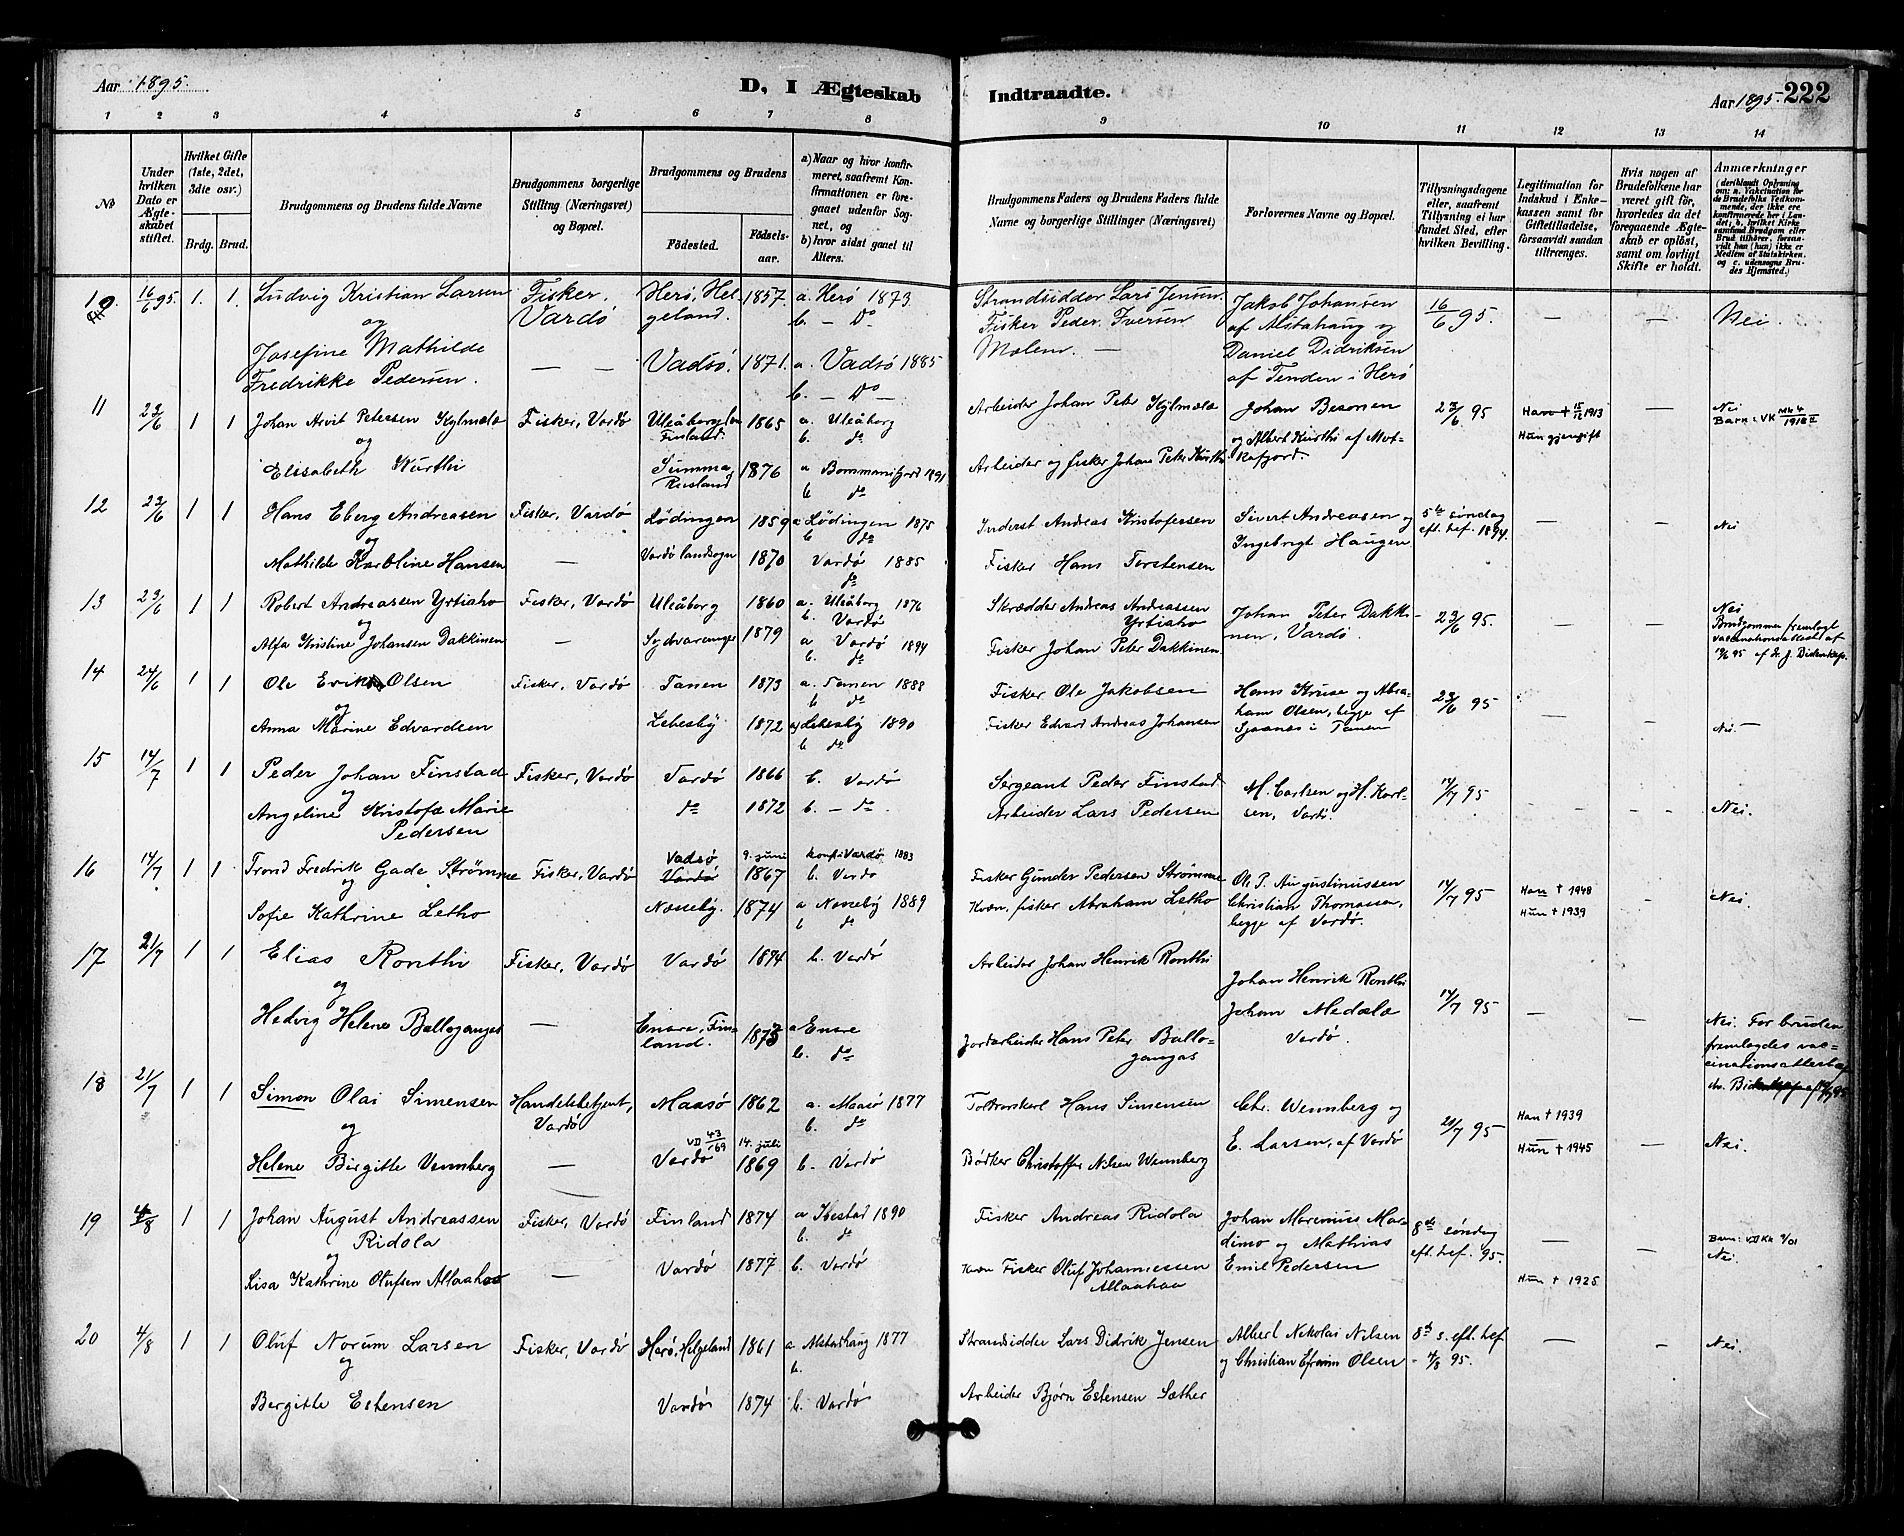 Aar 1895.
D, I Ægteskab
Indtraadte.
Aar 1895. 222
1 2 3 4 5 6 7 8 9 10 11 12 13 14
No
Under hvilken Dato er Ægteskabet stiftet.
Hvilket Gifte (1ste, 2det, 3die osv.)
Brdg. Brud.
Brudgommens og Brudens fulde Navne
Brudgommens borgerlige Stilling (Næringsvei) og Bopæl.
Brudgommens og Brudens
Fødested.
Fødselsaar.
a) Naar og hvor konfirmeret, saafremt Konfirmationen er foregaaet udenfor Sognet, og
b) hvor sidst gaaet til Alters.
Brudgommens Faders og Brudens Faders fulde Navne og borgerlige Stillinger (Næringsvei)
Forlovernes Navne og Bopæl.
Tillysningsdagene eller, saafremt Tillysning ei har fundet Sted, efter hvilken Bevilling.
Legitimation for Indskud i Enkekassen samt for Giftetilladelse, forsaavidt saadan tiltrænges.
Hvis nogen af Brudefolkene har været gift før, hvorledes da det foregaaende Ægteskab er opløst, samt om lovligt Skifte er holdt.
Anmærkninger
(deriblandt Oplysning om: a. Vakcination for de Brudefolks Vedkommende, der ikke ere konfirmerede her i Landet; b. hvilket Kirkesamfund Brudgom eller Brud tilhører, forsaavidt han (hun) ikke er Medlem af Statskirken, og c. udensogns Brudes Hjemsted.)
10. 16/6 95. 1. 1. Ludvig Kristian Larsen Fisker, Vardø Herø, Helgeland. 1857 a. Herø 1873 b. — Do Strandsidder Lars Jensen. Jakob Johansen af Alstahaug og 16/6 95. — — Nei.
og
Josefine Mathilde Fredrikke Pedersen. — — Vadsø. 1871. a. Vadsø 1885 b. — Do Fisker Peder Iversen Molem. — Daniel Didriksen af Tenden i Herø
11 23/6 1 1 Johan Arvit Petersen Kylmælæ Fisker, Vardø Uleåborg len Finland. 1865 a. Uleåborg b. do Arbeider Johan Peter Kylmælæ Johan Besonen 23/6 95 Han † 15/12 1913 — Nei Barn: VK Mb 4/1918 II
og
Elisabeth Kurthi Summa Rusland 1876 a Bommansfjord 1891 b do Arbeider og fisker Johan Peter Kurthi og Albert Kurthi af Mot-kafjord. Hun gjengift
12 23/6 1 1 Hans Eberg Andreasen Fisker, Vardø Lødingen 1859 a Lødingen 1875 b do Inderst Andreas Kristofersen Sivert Andreasen og 5te søndag eft. hef. 1894. — — Nei
og
Mathilde Karoline Hansen — Vardø landsogn 1870 Vardø 1885 do Fisker Hans Torstensen Ingebrigt Haugen
13 23/6 1 1 Robert Andreassen Yrtiaho Fisker, Vardø Uleåborg 1860 a. Uleåborg 1876 b. Vardø Skrædder Andreas Andreassen Yrtiaho Johan Peter Dakkinen, Vardø. 23/6 95. — — Nei Brudgommen fremlagt vaccinationsattest af 19/6 95 af dr. J. Bidenkap.
og
Alfa Kristine Johansen Dakkinen — Sydvaranger 1879 a Vardø 1894 b. do Fisker Johan Peter Dakkinen
14 24/6 1 1 Ole Erik Olsen Fisker, Vardø Tanen 1873 a. Tanen 1888 b do Fisker Ole Jakobsen Hans Kruse og Abraham Olsen, begge af Sjaanæs i Tanen 23/6 95 — — Nei. —
og
Anna Marine Edvardsen Lebesby 1872 a Lebesby 1890 b do Fisker Edvard Andreas Johansen
15 14/7 1 1 Peder Johan Finstad Fisker, Vardø Vardø 1866 b. Vardø Sergeant Peder Finstad M. Carlsen og H. Karlsen, Vardø. 14/7 95 — — Nei.
og
Angeline Kristofa Marie Pedersen do 1872 b. — do Arbeider Lars Pedersen
16 14/7 1 1. Trond Fredrik Gade Strømme Fisker, Vardø Vadsø Vardø 9. juni 1867 konf. i Vardø 1883 b. Vardø Fisker Gunder Pedersen Strømme Ole P. Augustinussen 14/7 95 Han † 1948 — Nei.
og
Sofie Kathrine Letho Nesseby. 1874 a Nesseby 1889 b do Kvæn, fisker Abraham Letho Christian Thomassen, begge af Vardø. Hun † 1939
17 21/7 1 1 Elias Ronthi Fisker, Vardø Vardø 1874 b. Vardø Arbeider Johan Henrik Ronthi Johan Henrik Ronthi 14/7 95 — — Nei. For bruden fremlagdes vaccinationsattest af dr. Bidenkap af 19/7 95
og
Hedvig Helene Balloganges — Enare, Finland. 1873 a Enare b. do Jordarbeider Hans Peter Ballogangas Johan Medælæ Vardø.
18 21/7 1 1 Simon Olai Simensen Handelsbetjent, Vardø Maasø 1862 a. Maasø 1877 b. do Toldvorskarl Hans Simensen Chr. Wennberg og 21/7 95 Han † 1939 — Nei.
og VD 43/'69 14. juli
Helene Birgitte Vennberg — Vardø 1869 b. Vardø Bødker Christoffer Nilsen Wennberg E. Larsen, af Vardø Hun † 1945
19 4/8 1 1 Johan August Andreassen Ridola Fisker, Vardø Finland 1874 a Ibestad 1890 b. do Fisker Andreas Ridola Johan Marenius Mardimo og Mathias 8de søndag eft. hef. 95. — — Barn: VD Kn 4/01 Nei.
og
Lisa Kathrine Olufsen Allaahaa — Vardø 1877 b. Vardø Kvæn Fisker Oluf Johannessen Allaahaa Emil Pedersen Hun † 1925
20 4/8 1 1 Oluf Norum Larsen Fisker, Vardø Herø, Helgeland 1861 a Alstadhaug 1877 b. Strandsidder Lars Didrik Jensen Albert Nikolai Nilsen 8de s. eft. hef — — Nei.
og Christian Efraim Olsen - 4/8 95.
og
Bergitte Estensen Vardø 1874 b. Vardø Arbeider Bjørn Estensen Sæther